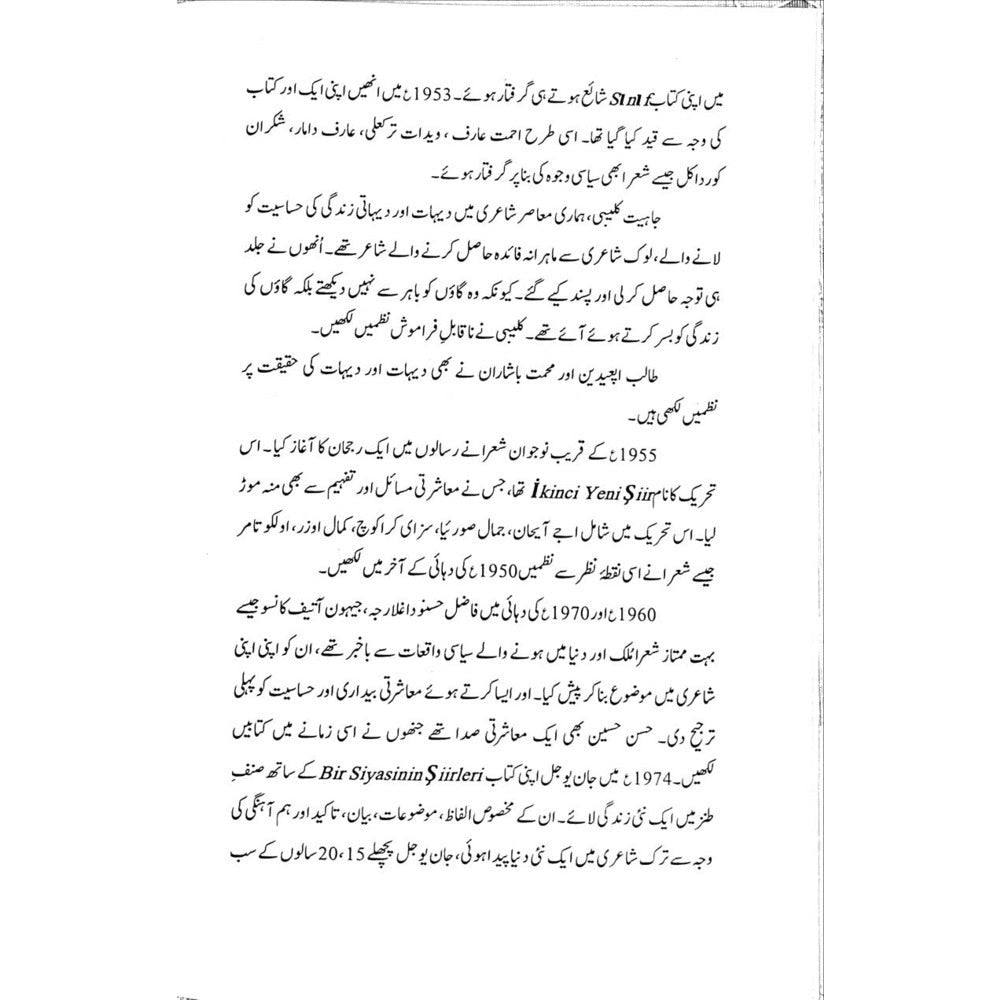 میں اپنی کتاب Sınıf شائع ہوتے ہی گرفتار ہوئے۔ 1953ع میں انھیں اپنی ایک اور کتاب
کی وجہ سے قید کیا گیا تھا۔ اسی طرح احمت عارف، ویدات ترکعلی، عارف دامار، شکران
کورداکل جیسے شعرا بھی سیاسی وجوہ کی بنا پر گرفتار ہوئے۔
جاہیت کلیبی، ہماری معاصر شاعری میں دیہات اور دیہاتی زندگی کی حساسیت کو
لانے والے، لوک شاعری سے ماہرانہ فائدہ حاصل کرنے والے شاعر تھے۔ اُنھوں نے جلد
ہی توجہ حاصل کر لی اور پسند کیے گئے۔ کیونکہ وہ گاؤں کو باہر سے نہیں دیکھتے بلکہ گاؤں کی
زندگی کو بسر کرتے ہوئے آئے تھے۔ کلیبی نے ناقابلِ فراموش نظمیں لکھیں۔
طالب اپعیدین اور محمت باشاران نے بھی دیہات اور دیہات کی حقیقت پر
نظمیں لکھی ہیں۔
1955ع کے قریب نوجوان شعرا نے رسالوں میں ایک رجحان کا آغاز کیا۔ اس
تحریک کا نام İkinci Yeni Şiir تھا، جس نے معاشرتی مسائل اور تفہیم سے بھی منہ موڑ
لیا۔ اس تحریک میں شامل اجے آیحان، جمال صورئیا، سزای کراکوچ، کمال اوزر، اولکو تامر
جیسے شعرا نے اسی نقطۂ نظر سے نظمیں 1950ع کی دہائی کے آخر میں لکھیں۔
1960ع اور 1970ع کی دہائی میں فاضل حسنو داغلارجہ، جیہون آتیف کانسو جیسے
بہت ممتاز شعرا مُلک اور دنیا میں ہونے والے سیاسی واقعات سے باخبر تھے، ان کو اپنی اپنی
شاعری میں موضوع بنا کر پیش کیا۔ اور ایسا کرتے ہوئے معاشرتی بیداری اور حساسیت کو پہلی
ترجیح دی۔ حسن حسین بھی ایک معاشرتی صدا تھے جنھوں نے اسی زمانے میں کتابیں
لکھیں۔ 1974ع میں جان یوجل اپنی کتاب Bir Siyasinin Şiirleri کے ساتھ صنفِ
طنز میں ایک نئی زندگی لائے۔ ان کے مخصوص الفاظ، موضوعات، بیان، تاکید اور ہم آہنگی کی
وجہ سے ترک شاعری میں ایک نئی دنیا پیدا ہوئی، جان یوجل پچھلے 15، 20 سالوں کے سب